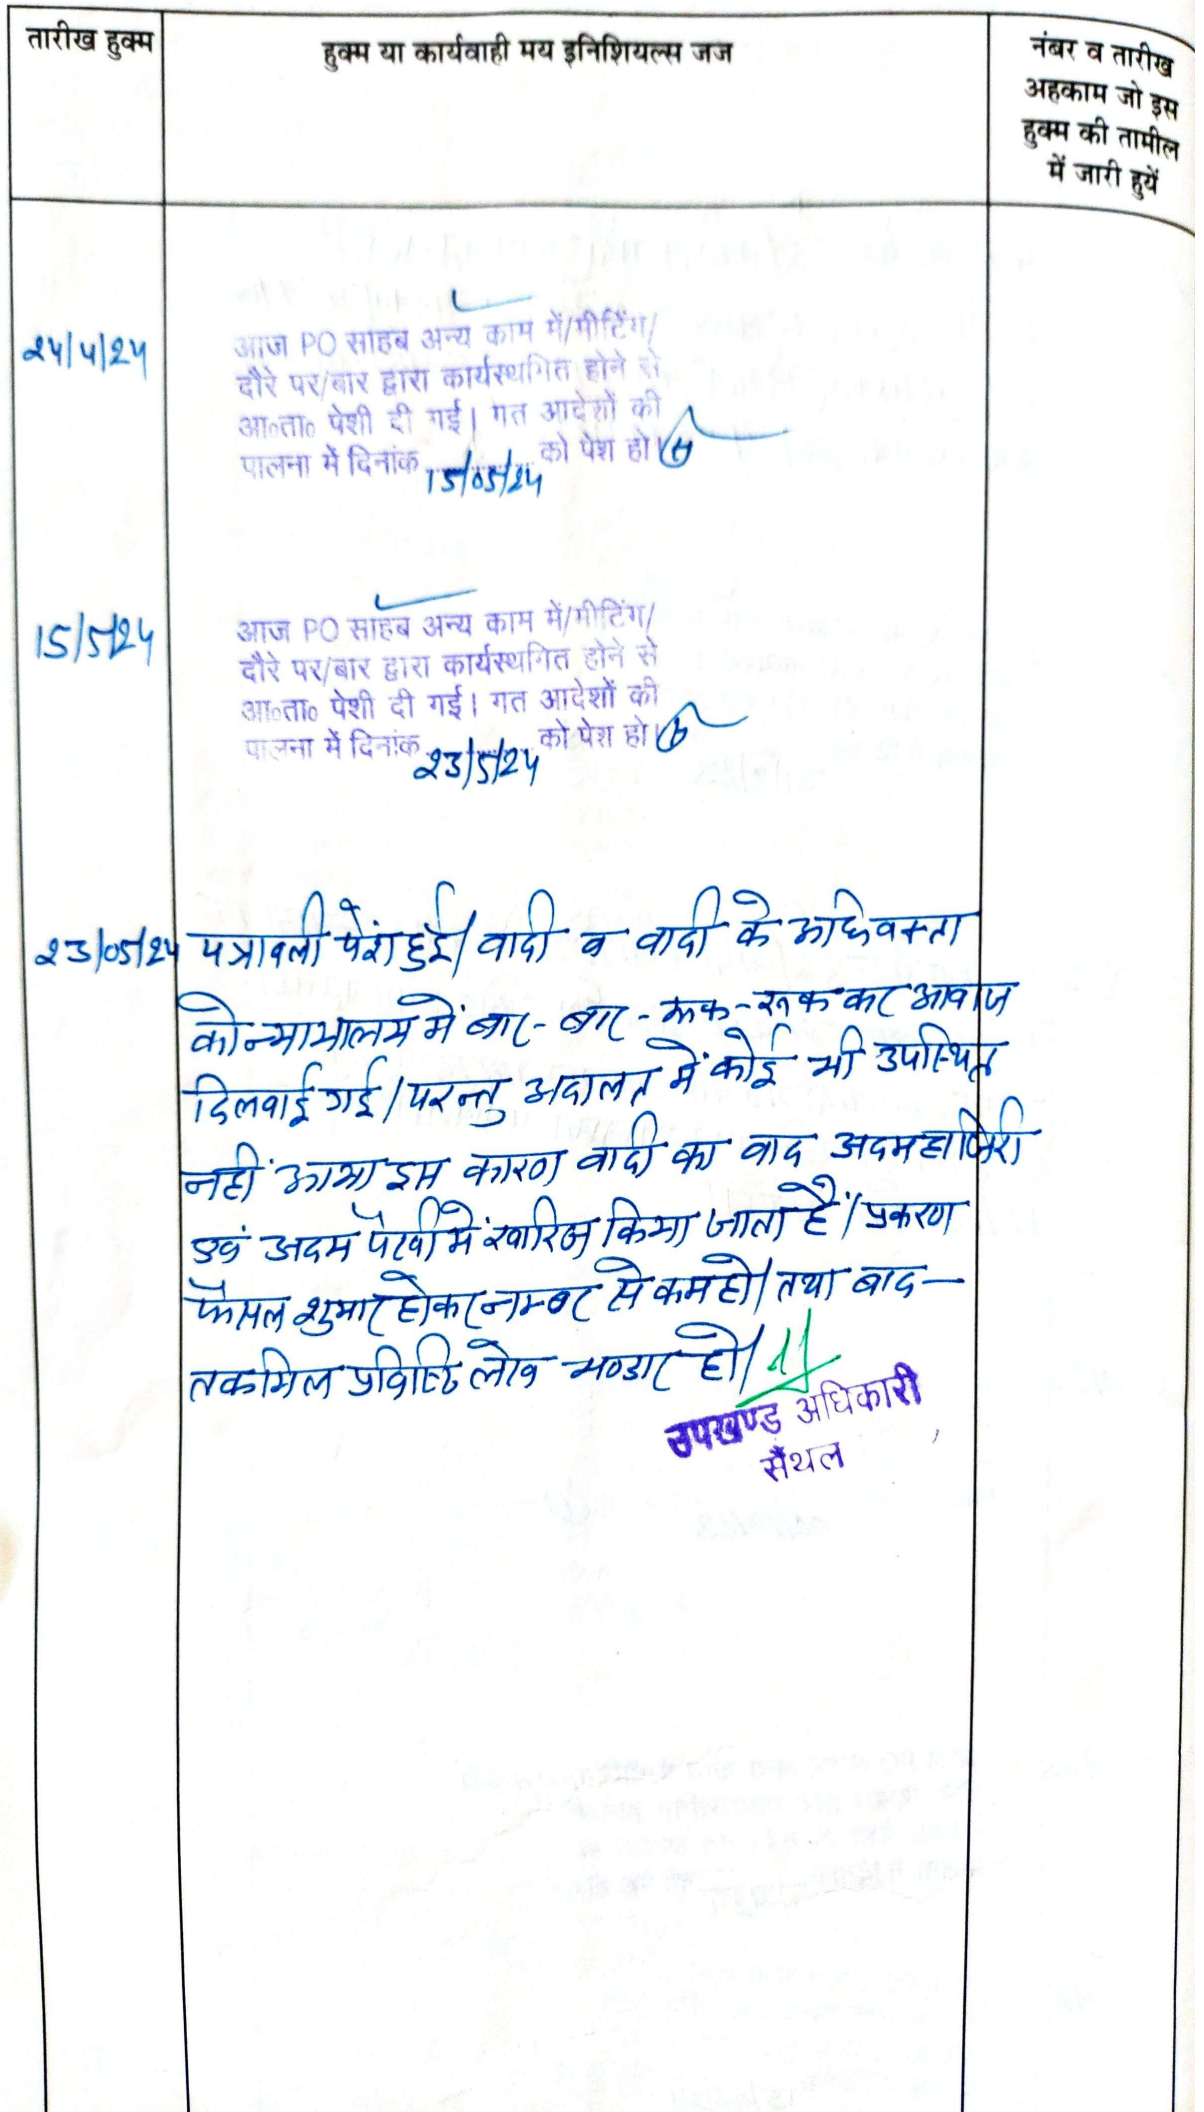 तारीख हुक्म
हुक्म या कार्यवाही मय इनिशियल्स जज
नंबर व तारीख
अहकाम जो इस
हुक्म की तामील
में जारी हुयें
24/4/24
आज PO साहब अन्य काम में/मीटिंग/
दौरे पर/बार द्वारा कार्यस्थगित होने से
आ०ता० पेशी दी गई। गत आदेशों की
पालना में दिनांक 15/05/24 को पेश हो।
15/5/24
आज PO साहब अन्य काम में/मीटिंग/
दौरे पर/बार द्वारा कार्यस्थगित होने से
आ०ता० पेशी दी गई। गत आदेशों की
पालना में दिनांक 23/5/24 को पेश हो।
23/05/24 पत्रावली पेश हुई। वादी व वादी के अधिवक्ता
को न्यायालय में बार-बार-रूक-रूक कर आवाज
दिलवाई गई। परन्तु अदालत में कोई भी उपस्थित
नहीं आया इस कारण वादी का वाद अदमहाजिरी
एवं अदम पैरवी में खारिज किया जाता है। प्रकरण
फैसल शुमार होकर नम्बर से कम हो। तथा बाद-
तकमिल प्रविष्टि लेख भण्डार हो।
उपखण्ड अधिकारी
सैंथल